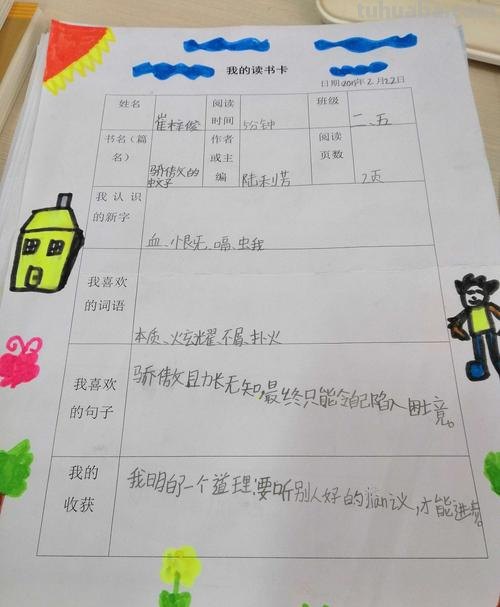 tuhuaba.com
我的读书卡
日期:2015年2月22日
姓名 崔梓俊 阅读时间 5分钟 班级 二、五
书名(篇名) 骄傲的蚊子 作者或主编 陆利芳 阅读页数 2页
我认识的新字
血、恨、嗝、蛾
我喜欢的词语
本质、炫耀、不屑、扑火
我喜欢的句子
骄傲且力长无知,最终只能令自己陷入困境。
我的收获
我明白了一个道理:要听别人好的jian议,才能进步。